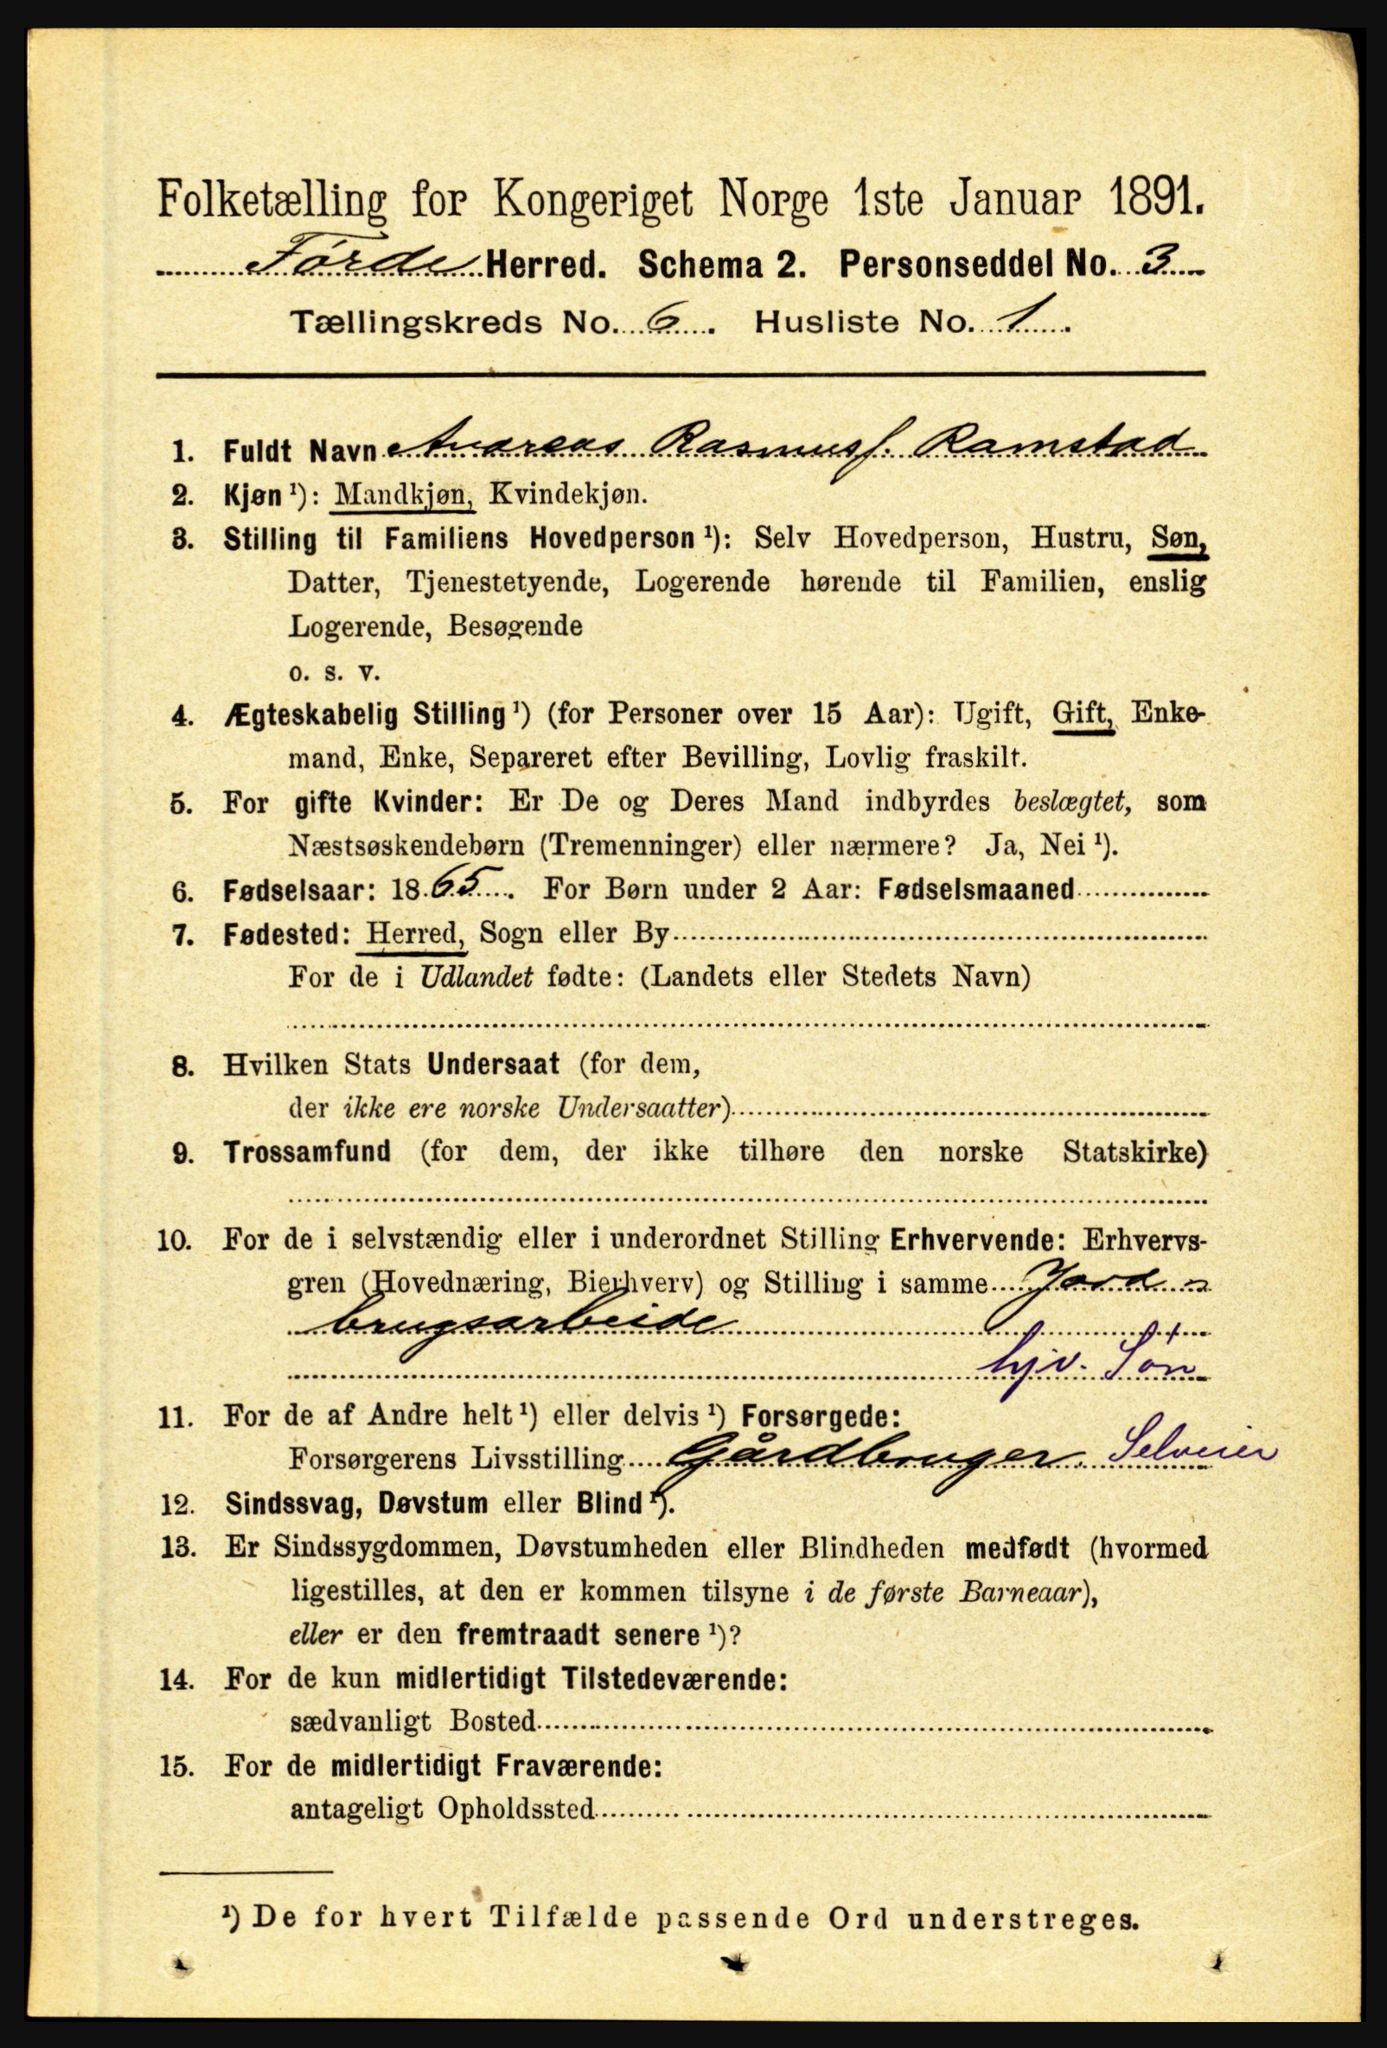 Folketælling for Kongeriget Norge 1ste Januar 1891.
Førde Herred. Schema 2. Personseddel No. 3
Tællingskreds No. 6. Husliste No. 1.
1. Fuldt Navn Andreas Rasmusf. Ramstad
2. Kjøn ¹): Mandkjøn, Kvindekjøn.
3. Stilling til Familiens Hovedperson ¹): Selv Hovedperson, Hustru, Søn,
Datter, Tjenestetyende, Logerende hørende til Familien, enslig
Logerende, Besøgende
o. s. v.
4. Ægteskabelig Stilling ¹) (for Personer over 15 Aar): Ugift, Gift, Enke-
mand, Enke, Separeret efter Bevilling, Lovlig fraskilt.
5. For gifte Kvinder: Er De og Deres Mand indbyrdes beslægtet, som
Næstsøskendebørn (Tremenninger) eller nærmere? Ja, Nei ¹).
6. Fødselsaar: 1865. For Børn under 2 Aar: Fødselsmaaned
7. Fødested: Herred, Sogn eller By
For de i Udlandet fødte: (Landets eller Stedets Navn)
8. Hvilken Stats Undersaat (for dem,
der ikke ere norske Undersaatter)
9. Trossamfund (for dem, der ikke tilhøre den norske Statskirke)
10. For de i selvstændig eller i underordnet Stilling Erhvervende: Erhvervs-
gren (Hovednæring, Bierhverv) og Stilling i samme Jord=
brugsarbeide
hjv. Søn
11. For de af Andre helt ¹) eller delvis ¹) Forsørgede:
Forsørgerens Livsstilling Gårdbruger. Selveier
12. Sindssvag, Døvstum eller Blind ¹).
13. Er Sindssygdommen, Døvstumheden eller Blindheden medfødt (hvormed
ligestilles, at den er kommen tilsyne i de første Barneaar),
eller er den fremtraadt senere ¹)?
14. For de kun midlertidigt Tilstedeværende:
sædvanligt Bosted
15. For de midlertidigt Fraværende:
antageligt Opholdssted
¹) De for hvert Tilfælde passende Ord understreges.